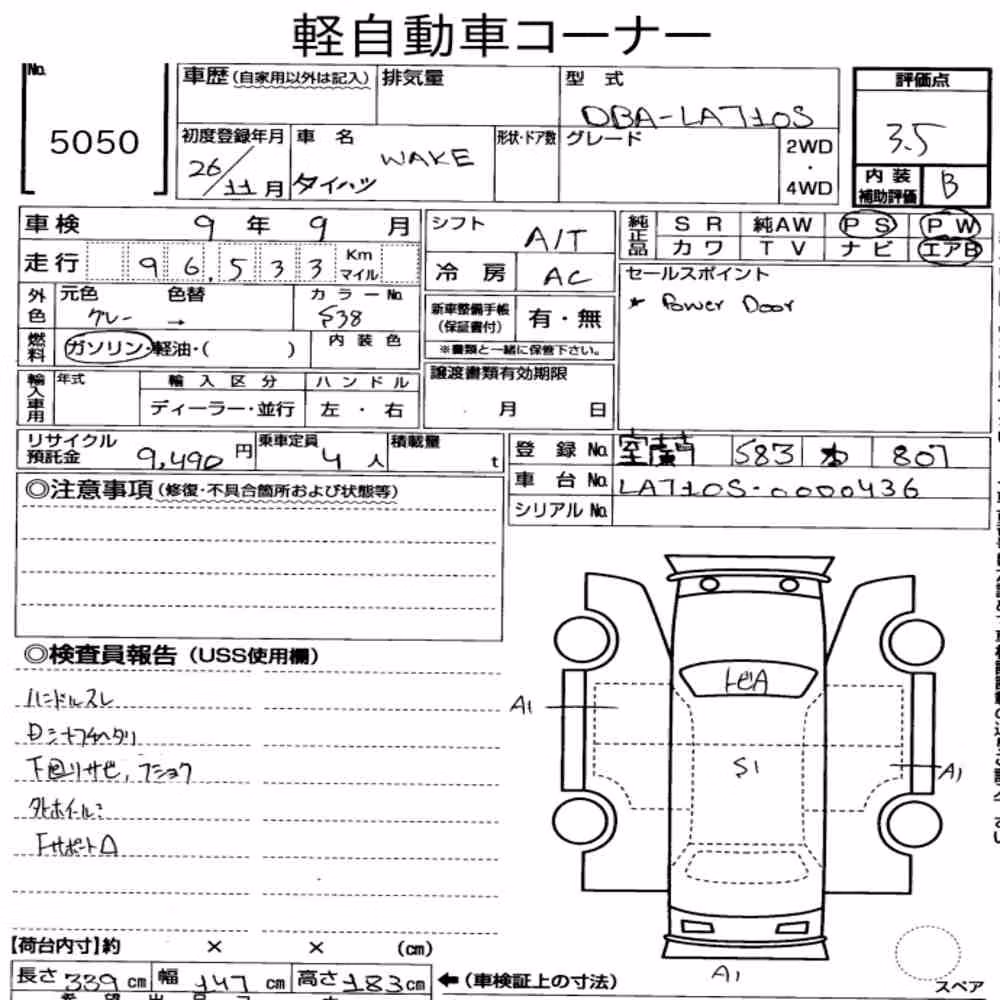 軽自動車コーナー
No.
5050
車歴(自家用以外は記入)
排気量
型 式
DBA-LA710S
評価点
3.5
初度登録年月
26/11月
車 名
WAKE
ダイハツ
形状・ドア数
グレード
2WD
・
4WD
内装
補助評価
B
車検 9年 9月
シフト
A/T
純正品
SR 純AW PS PW
カワ TV ナビ エアB
走行 96,533 Km
マイル
冷房 AC
セールスポイント
* Power Door
外色
元色 色替
グレー →
カラーNo.
S38
新車整備手帳
(保証書付)
有・無
※書類と一緒に保管下さい。
燃料
ガソリン・軽油・( )
内装色
輸入車用
年式
輸入区分
ハンドル
ディーラー・並行
左・右
譲渡書類有効期限
月 日
リサイクル
預託金
9,490円
乗車定員
4人
積載量
t
登録No. 室蘭 583 807
車台No. LA710S-0000436
シリアルNo.
◎注意事項(修復・不具合箇所および状態等)
◎検査員報告(USS使用欄)
ハンドルスレ
下回りサビ,フショク
FサポートΔ
トビA
A1
S1
A1
A1
【荷台内寸】約 × × (cm)
長さ339cm 幅147cm 高さ183cm
←(車検証上の寸法)
スペア